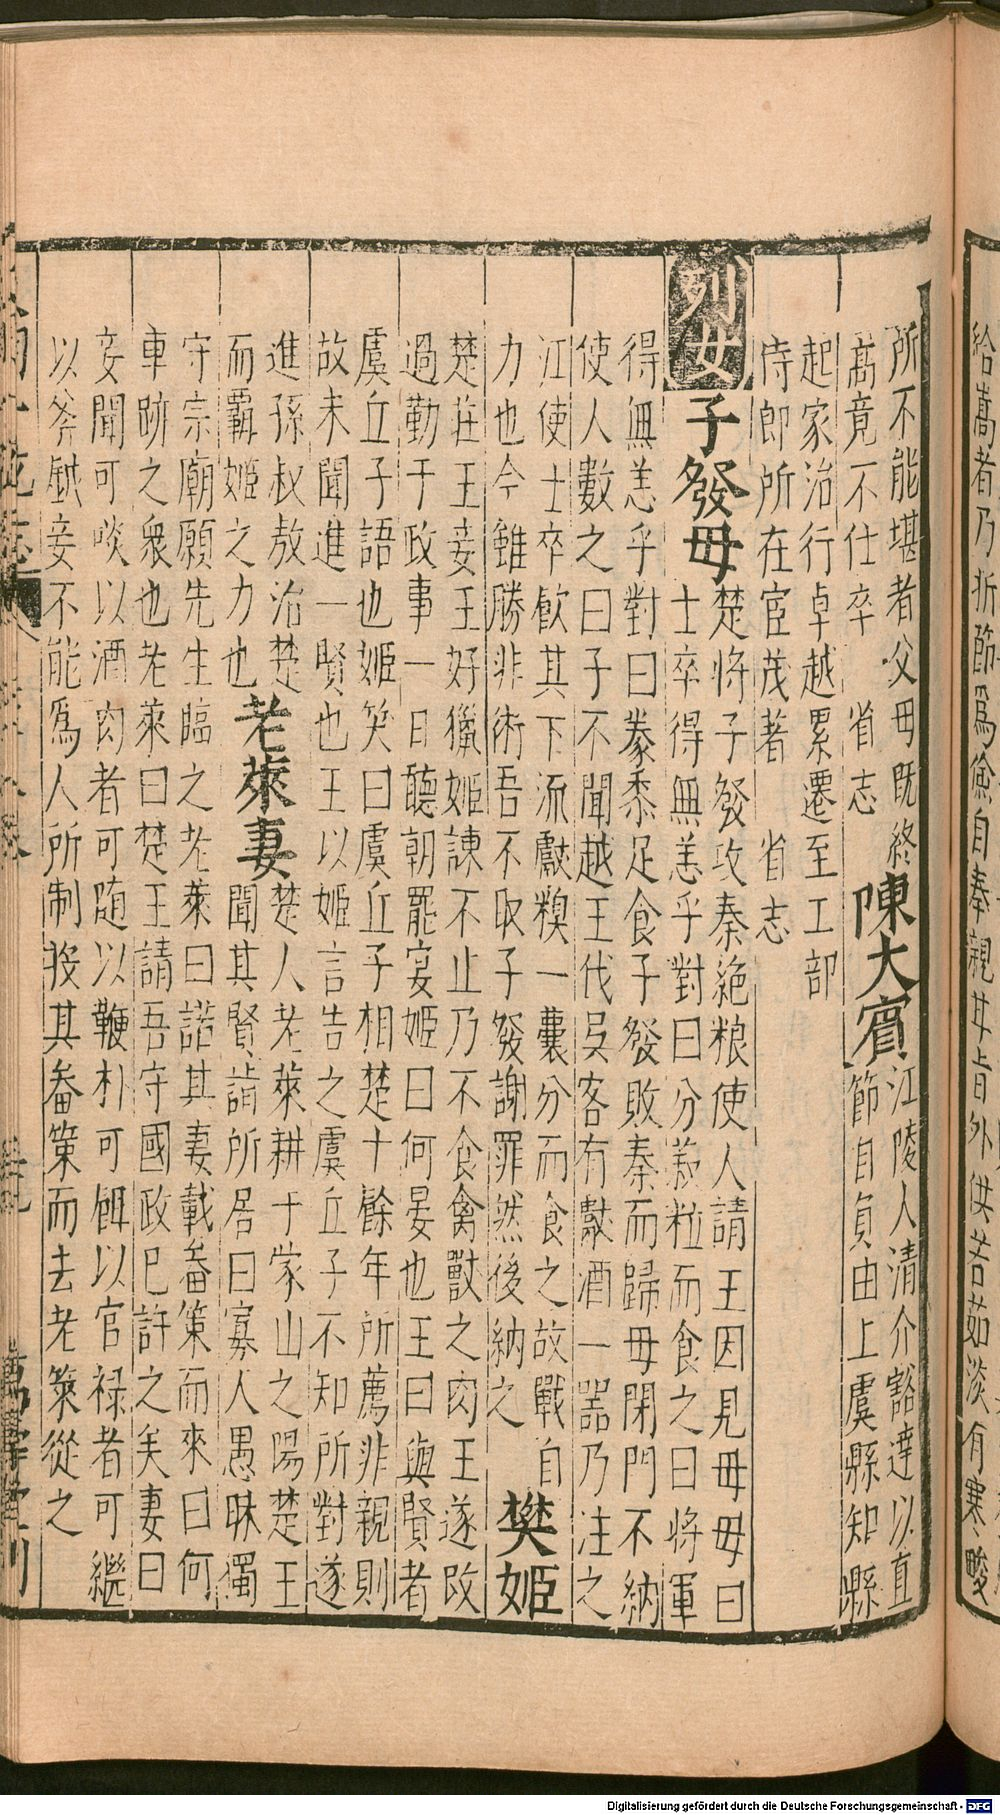 給嵩者乃折節爲儉自奉親甘旨外供若茹淡有寒畯
所不能堪者父母既終
高竟不仕卒　省志
陳大賔
江陵人清介豁達以直
節自負由上虞縣知縣
起家治行卓越累遷至工部
侍郎所在宦茂著　省志
列女
子發母
楚將子發攻秦絶粮使人請王因見母母曰
士卒得無恙乎對曰分菽粒而食之曰將軍
得無恙乎對曰豢黍足食子發敗秦而歸母閉門不納
使人數之曰子不聞越王伐吳客有獻酒一噐乃注之
江使士卒飮其下流獻糗一囊分而食之故戰自
力也今雖勝非術吾不取子發謝罪然後納之
樊姬
楚莊王妾王好獵姬諫不止乃不食禽獸之肉王遂改
過勤于政事一日聽朝罷宴姬曰何晏也王曰與賢者
虞丘子語也姬笑曰虞丘子相楚十餘年所薦非親則
故未聞進一賢也王以姬言告之虞丘子不知所對遂
進孫叔敖治楚
而霸姬之力也
老萊妻
楚人老萊耕于蒙山之陽楚王
聞其賢詣所居曰寡人愚昧獨
守宗廟願先生臨之老萊曰諾其妻載畚策而來曰何
車跡之衆也老萊曰楚王請吾守國政已許之矣妻曰
妾聞可啖以酒肉者可随以鞭朴可餌以官禄者可繼
以斧鉞妾不能爲人所制投其畚策而去老萊從之
Digitalisierung gefördert durch die Deutsche Forschungsgemeinschaft - DFG